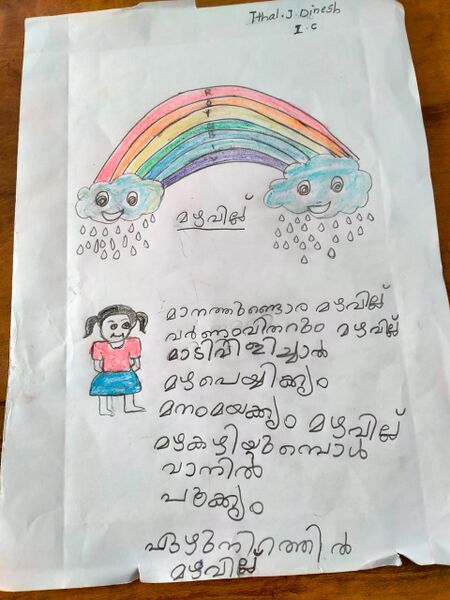 Ithal.J.Dinesh
I.C
R
O
Y
G
B
I
V
മഴവില്ല്
മാനത്തുണ്ടൊര മഴവില്ല്
വർണ്ണംവിതറും മഴവില്ല്
മഴപെയ്യിക്കും
മനംമയക്കും മഴവില്ല്
മഴകഴിയുമ്പൊൾ
വാനിൽ
ഏഴുനിറത്തിൽ
മഴവില്ല്